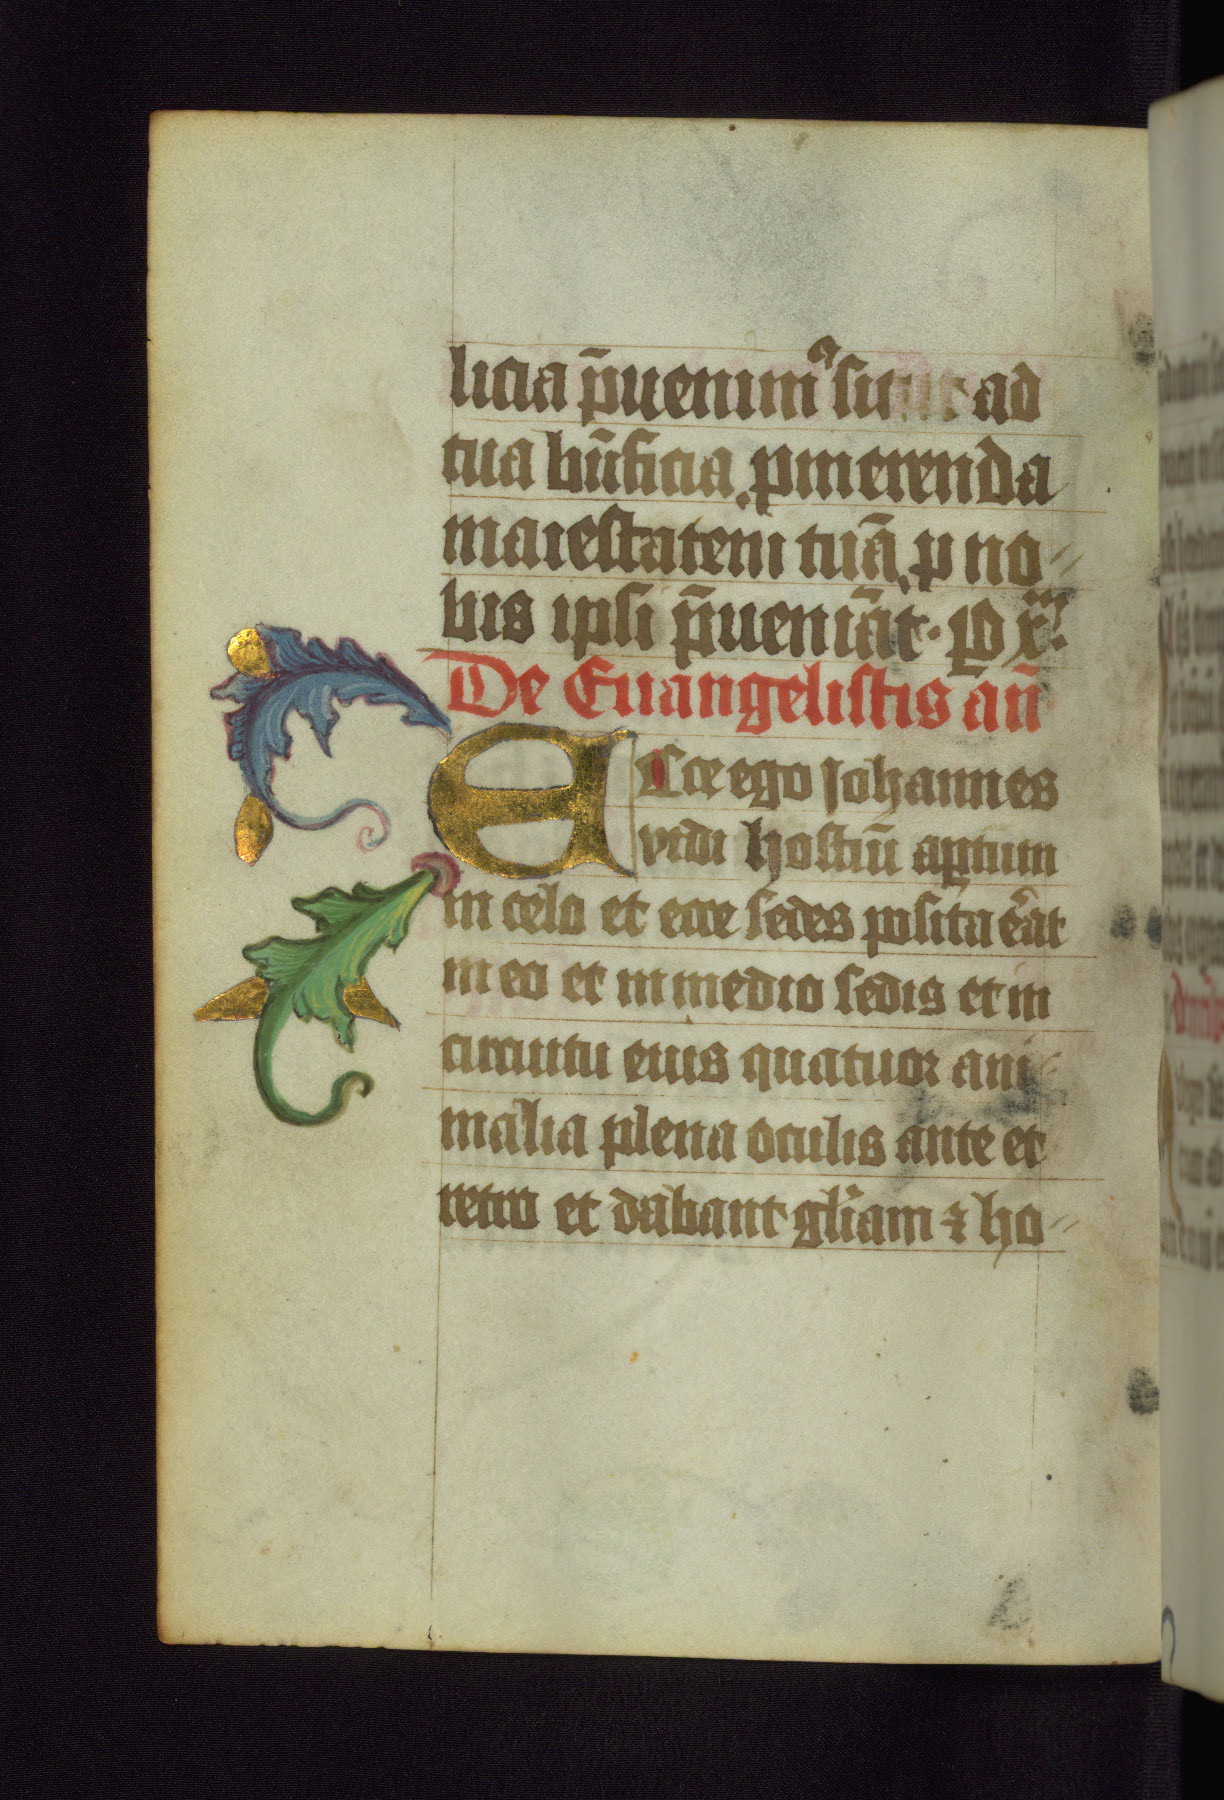 licia p̄uenimꝰ sicut ad
tua bn̄ficia ꝓmerenda
maiestatem tuā p no〃
bis ipsi p̄ueniāt · P d xᵐ.
De Euangelistis an̄
ECce ego iohannes
vidi hostiū aꝑtum
in celo et ecce sedes posita erat
in eo et in medio sedis et in
circuitu eius quatuor ani〃
malia plena oculis ante et
retro et dabant gliam ⁊ ho〃